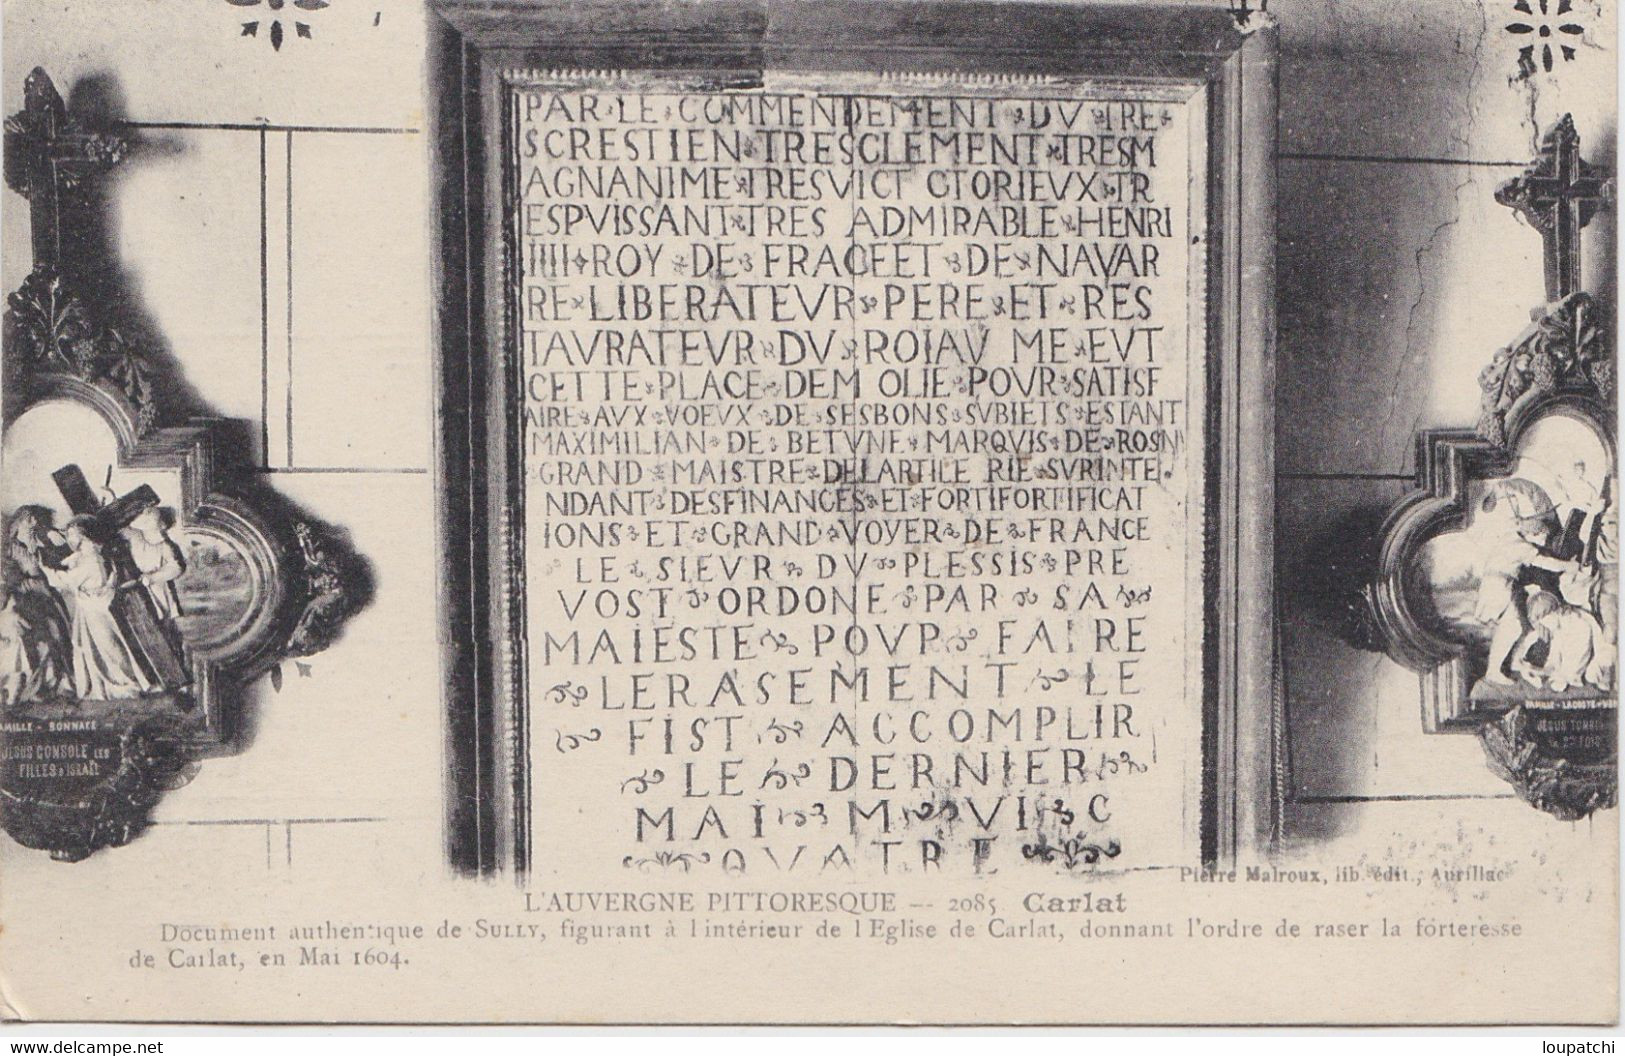 PAR LE COMMENDEMENT DV TRE
SCRESTIEN TRESCLEMENT TRESM
AGNANIME TRESVICT CTORIEVX TR
ESPVISSANT TRES ADMIRABLE HENRI
IIII ROY DE FRACEET DE NAVAR
RE LIBERATEVR PERE ET RES
TAVRATEVR DV ROIAV ME EVT
CETTE PLACE DEM OLIE POVR SATISF
AIRE AVX VOEVX DE SESBONS SVBIETS ESTANT
MAXIMILIAN DE BETVNE MARQVIS DE ROSNI
GRAND MAISTRE DELARTILE RIE SVRINTE
NDANT DESFINANCES ET FORTIFORTIFICAT
IONS ET GRAND VOYER DE FRANCE
LE SIEVR DV PLESSIS PRE
VOST ORDONE PAR SA
MAIESTE POVR FAIRE
LERASEMENT LE
FIST ACCOMPLIR
LE DERNIER
MAI M VI C
QVATRE
AMILLE - BONNAFE
JÉSUS CONSOLE LES
FILLES D'ISRAËL
FAMILLE - LACOSTE
JÉSUS TOMBE
Pierre Malroux, lib. édit., Aurillac
L'AUVERGNE PITTORESQUE -- 2085 Carlat
Document authentique de SULLY, figurant à l'intérieur de l'Eglise de Carlat, donnant l'ordre de raser la forteresse
de Carlat, en Mai 1604.
https://www.delcampe.net
loupatchi